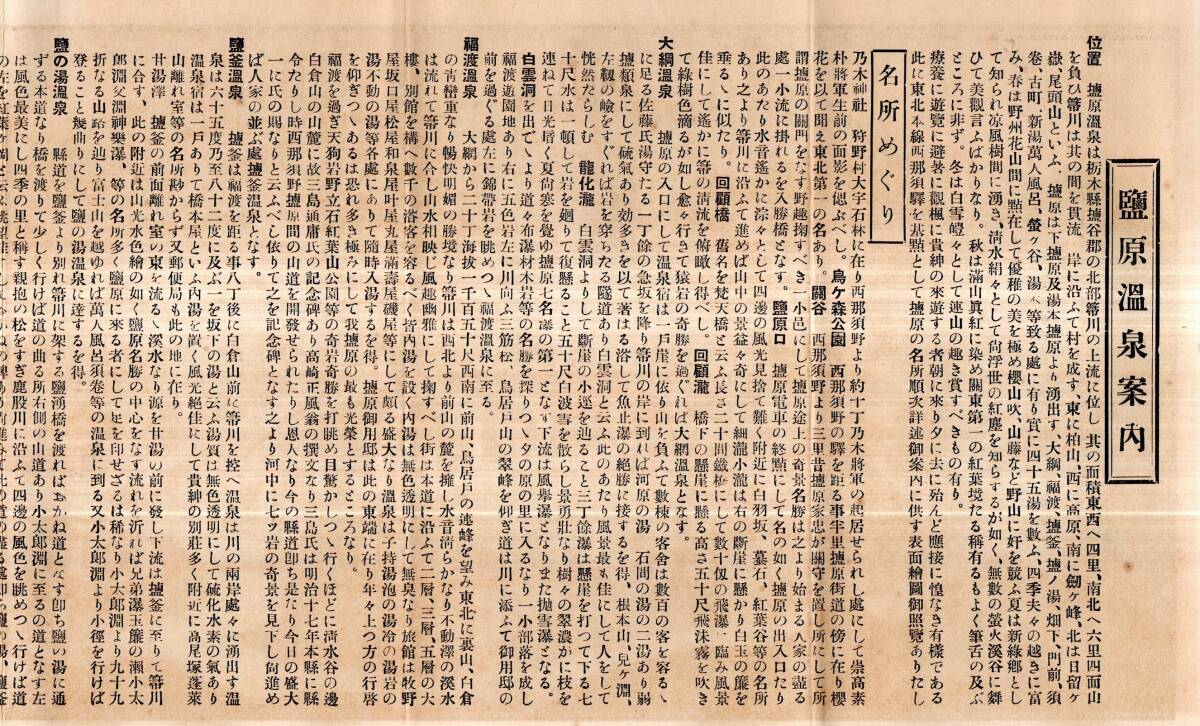 鹽原溫泉案內
位置　鹽原溫泉は栃木縣鹽谷郡の北部箒川の上流に位し　其の面積東西へ四里、南北へ六里四面山
を負ひ箒川は其の間を貫流　岸に沿ふて村を成す、東に柏山　西に高原、南に劍ヶ峰、北は日留ヶ
嶽尾頭山といふ、下鹽原は下鹽原及湯本鹽原より湧出す、大綱、福渡、鹽釜、鹽ノ湯、畑下、門前、須
卷、古町、新湯萬人風呂、螢ヶ谷、湯本等致る處に有り賞に四十五湯を數ふ、四季夫々の越きに富
み、春は野州花山間に點在して優雅の美を極め櫻山吹、山藤など野山に奸を競ふ夏は新綠鄕とし
て知られ凉風樹間に湧き、淸水絹々として尙浮世の紅塵を知らするが如く、無數の螢火溪谷に舞
ひて美觀言ふばかりなり。秋は滿山眞紅に染め關東第一の紅葉境たる稱有るもよく筆舌の及ぶ
ところに非ず。冬は白雪皚々として連山の趣き賞すべきもの有り。
療養に遊覽に避暑に觀楓に貴紳の來遊する者朝に來り夕に去に殆んど應接に惶なき有樣である
此に東北本線西那須驛を基點として鹽原の名所順次詳述御案內に供す表面繪圖御照覽ありたし
名所めぐり
乃木神社　狩野村大字石林に在り西那須野より約十丁乃木將軍の起居せられし處にして崇高素
朴將軍生前の面影を偲ぶべし。烏ケ森公園　西那須野の驛を距る事半里鹽原街道の傍に在り櫻
花を以て聞え東北第一の名あり。關谷　西那須野より三里昔鹽原家忠が關守を置し所にして所
謂鹽原の關門をなす野趣掬すべき一小邑にして鹽原途上の奇景名勝は之より始まる人家の盡る
處一小流に掛れるを入勝橋となす。鹽原口　鹽原電車の終點にして名の如く鹽原の出入口たり
此のあたり水音遙かに淙々として四邊の風光見捨て難く附近に白羽坂、墓石、紅葉谷等の名所
あり之より箒川に沿ふて進めば山中の景益々奇にして細瀧小瀧は右の斷崖に懸かり白玉の簾を
垂るヽに似たり。回顧橋　舊名を梵天橋と云ふ長さ二十間鐵橋にして數十仭の飛瀑に臨み風景
佳にして遙かに箒の淸流を俯瞰し得べし。回顧瀧　橋下の懸崖に懸る高さ五十尺飛沫霧を吹き
て綠樹色滴るが如し愈々行きて猿岩の奇勝を過ぐれば大綱溫泉となす。
大綱溫泉　鹽原の入口にして溫泉宿は一戶崖に依り山を負ふて數棟の客舍は數百の客を容るヽ
に足る佐藤氏湯守たる一丁餘の急坂を降り箒川の岸に到れば河原の湯　石間の湯の二湯あり弱
鹽類泉にして硫氣あり効多きを以て著はる浴して魚止瀑の絕勝に接するを得、根本山、兒ヶ淵、
左靱の嶮をすぐれば岩を穿ちたる隧道あり白雲洞と云ふ此のあたり風景最も佳にして人をして
恍然たらしむ　龍化瀧　白雲洞より復しにして斷崖の小逕を辿ること三丁餘瀑は懸崖を打つて下る七
十尺水は一頓して岩を廻りて復懸ること五十尺白波雪を散らし景勇壯なり樹々の翠濃かに枝を
連ねて日光届く夏尙寒を覺ゆ鹽原七名瀑の第一となす下流は風擧瀑となりまた拋雪瀑となる。
白雲洞を出でヽより道々布瀑材木岩等の名勝を探りつヽ夕の原の里に入るなり一小部落を成し
福渡遊園地あり右に五色岩左に川向ふ三筋松、鳥居戶山の翠峰を仰ぎ道は川に添ふて御用邸の
前を過ぐる處左に錦帶岩を眺めつヽ福渡溫泉に至る。
福渡溫泉　大綱から二十丁海拔一千百五十尺西南に前山、鳥居戶の連峰を望み東北に裏山、白倉
の靑巒重なり暢快明媚の勝境なり箒川は西北より前山の麓を擁し水音淸らかなり不動澤の溶泉
は流れて箒川に合し山水相映じ風趣幽雅にして掬すべし街は本道に沿ふて二層、三層、五層の大
樓、別館を構へ數千の浴客を容るべく皆內湯を設く內湯は無色透明にして無臭なり旅館は牧野
屋坂口屋松屋和泉屋叶屋丸屋滿壽屋磯屋等にして頗る盛大なり溫泉は子持湯泡の湯冷の湯岩の
湯不動の湯等各處にあり隨時入湯するを得。鹽原御用邸は此の東端に在り年々上つ方の行啓
を仰ぎつヽあるは恐れ多き極みにして我鹽原の最も光榮とするところなり。
福渡を過ぎ天狗岩野立石紅葉山公園等の奇岩奇勝を打眺め目驚かしつヽ行くほどに淸水谷の邊
白倉の山麓に故三島通庸氏の記念碑あり高崎正風翁の撰文なり三島氏は明治十七年本縣に縣
令たりし時西那須野鹽原間の山道を開發せられたりし恩人なり今の縣道卽ち是なり今日の盛大
一に氏の賜なりと云ふべし依りて之を記念碑となす之より河中に七ッ岩の奇景を見下し向進め
ば人家の並ぶ處鹽釜溫泉となす。
鹽釜溫泉　鹽釜は福渡を距る事八丁後に白倉山前に箒川を控へ溫泉は川の兩岸處々に湧出す溫
泉は六十五度乃至八十二度に及ぶ一を坂下の湯と云ふ湯質は無色透明にして硫化水素の氣あり
溫泉宿は一戶ありて橋本屋といふ內湯を置く風光絕佳にして貴紳の別莊多く附近に高尾塚蓬萊
山離れ室等の名所尠からず又郵便局も此の地に在り。
甘湯澤　鹽釜の前面離れ室の東を流るヽ溪水なり源を甘湯の前に發し下流は鹽釜に至りて箒川
に合す、此の附近は山光水色繪の如く鹽原名勝の中心をなす流れを泝れば兄弟瀑玉簾の瀬小太
郞淵父淵神樂瀑、等の名所多く鹽原に來る者にして足を印せざるは稀なり小太郞淵より九十九
折なる山路を辿り富士山を越ゆれば萬人風呂須卷等の溫泉に到る又小太郞淵より小徑を行けば
登ること幾曲りにして鹽の湯溫泉に達するを得。
鹽の湯溫泉　縣道を鹽釜より別れ箒川に架する鹽湧橋を渡ればおかね道となす卽ち鹽の湯に通
ずる本道なり橋を渡りて少しく行けば道の曲る所右側の山道あり小太郞淵に至るの道となす左
は風色最美にし四季の里と稱す親抱の松をすぎ鹿股川に沿ふて四邊の風色を眺めつヽ行けば道